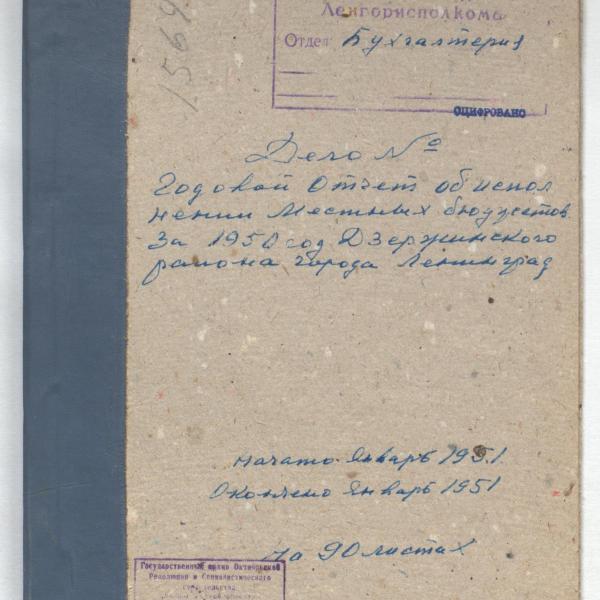 1569
Ленгорисполкома
Отдел Бухгалтерия
ОЦИФРОВАНО
Дело №
Годовой Отчет об испол
нении Местных бюджетов
за 1950 год Дзержинского
района города Ленинград
начато Январь 1951.
Окончено Январь 1951
на 90 листах
Государственный архив Октябрьской
Революции и Социалистического
строительства